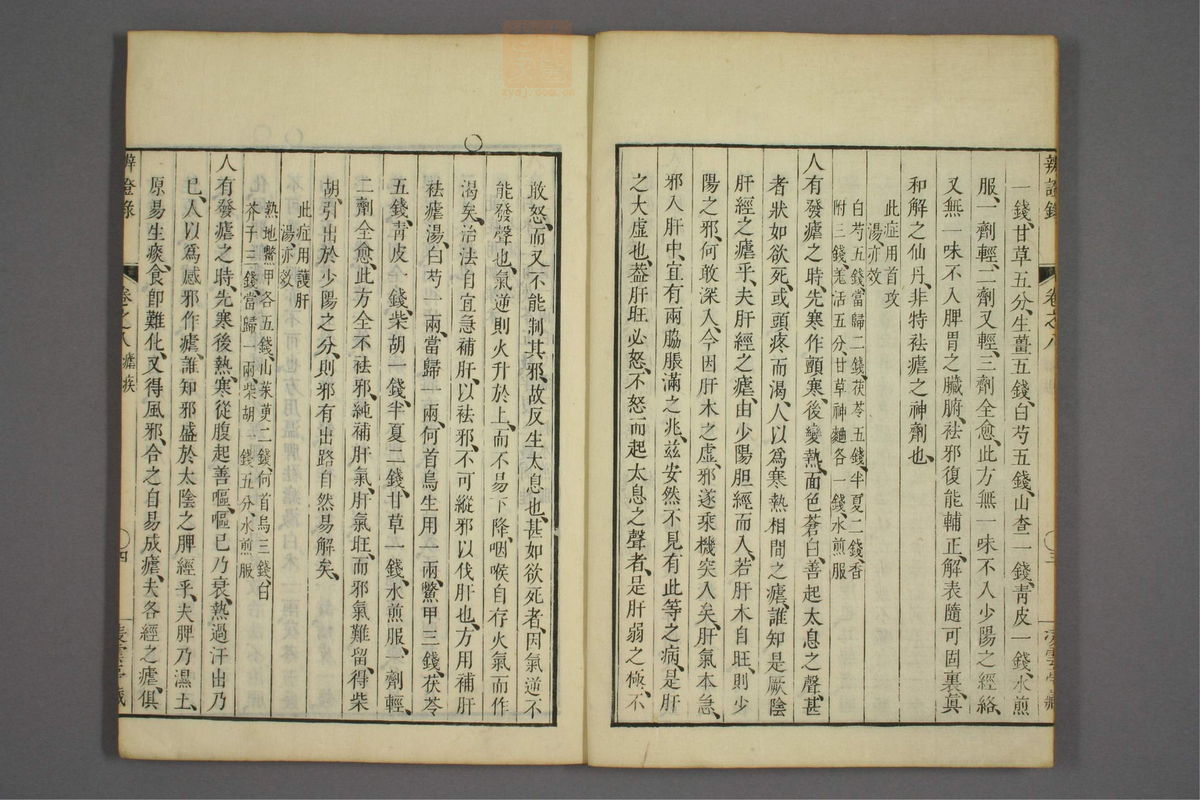 一錢、甘草五分、生薑五錢、白芍五錢、山查一錢、青皮一錢、水煎
服、一劑輕、二劑又輕、三劑全愈、此方無一味不入少陽之經絡、
又無一味不入脾胃之臟腑、祛邪復能輔正、解表隨可固裏、真
和解之仙丹、非特祛瘧之神劑也、
此症用首攻
湯亦效
白芍五錢、當歸二錢、茯苓五錢、半夏二錢、香
附三錢、羌活五分、甘草神麯各一錢、水煎服
人有發瘧之時、先寒作顫、寒後變熱、面色蒼白、善起太息之聲、甚
者狀如欲死、或頭疼而渴、人以爲寒熱相間之瘧、誰知是厥陰
肝經之瘧乎、夫肝經之瘧、由少陽胆經而入、若肝木自旺、則少
陽之邪、何敢深入、今因肝木之虛、邪遂乘機突入矣、肝氣本急、
邪入肝中、宜有兩脇脹滿之兆、茲安然不見有此等之病、是肝
之大虛也、葢肝旺必怒、不怒而起太息之聲者、是肝弱之極、不
敢怒、而又不能制其邪、故反生太息也、甚如欲死者、因氣逆不
能發聲也、氣逆則火升於上、而不易下降、咽喉自存火氣而作
渴矣、治法自宜急補肝、以祛邪、不可縱邪以伐肝也、方用補肝
祛瘧湯、白芍一兩、當歸一兩、何首烏生用一兩、鱉甲三錢、茯苓
五錢、青皮一錢、柴胡一錢、半夏二錢、甘草一錢、水煎服、一劑輕、
二劑全愈、此方全不祛邪、純補肝氣、肝氣旺、而邪氣難留、得柴
胡、引出於少陽之分、則邪有出路自然易解矣、
此症用護肝
湯亦效
熟地鱉甲各五錢、山茱萸二錢、何首烏三錢、白
芥子三錢、當歸一兩、柴胡一錢五分、水煎服
人有發瘧之時、先寒後熱、寒從腹起善嘔、嘔已乃衰、熱過汗出乃
已、人以爲感邪作瘧、誰知邪盛於太陰之脾經乎、夫脾乃濕土、
原易生痰、食即難化、又得風邪、合之自易成瘧、夫各經之瘧、俱
辨證錄
卷之八 瘧疾
四